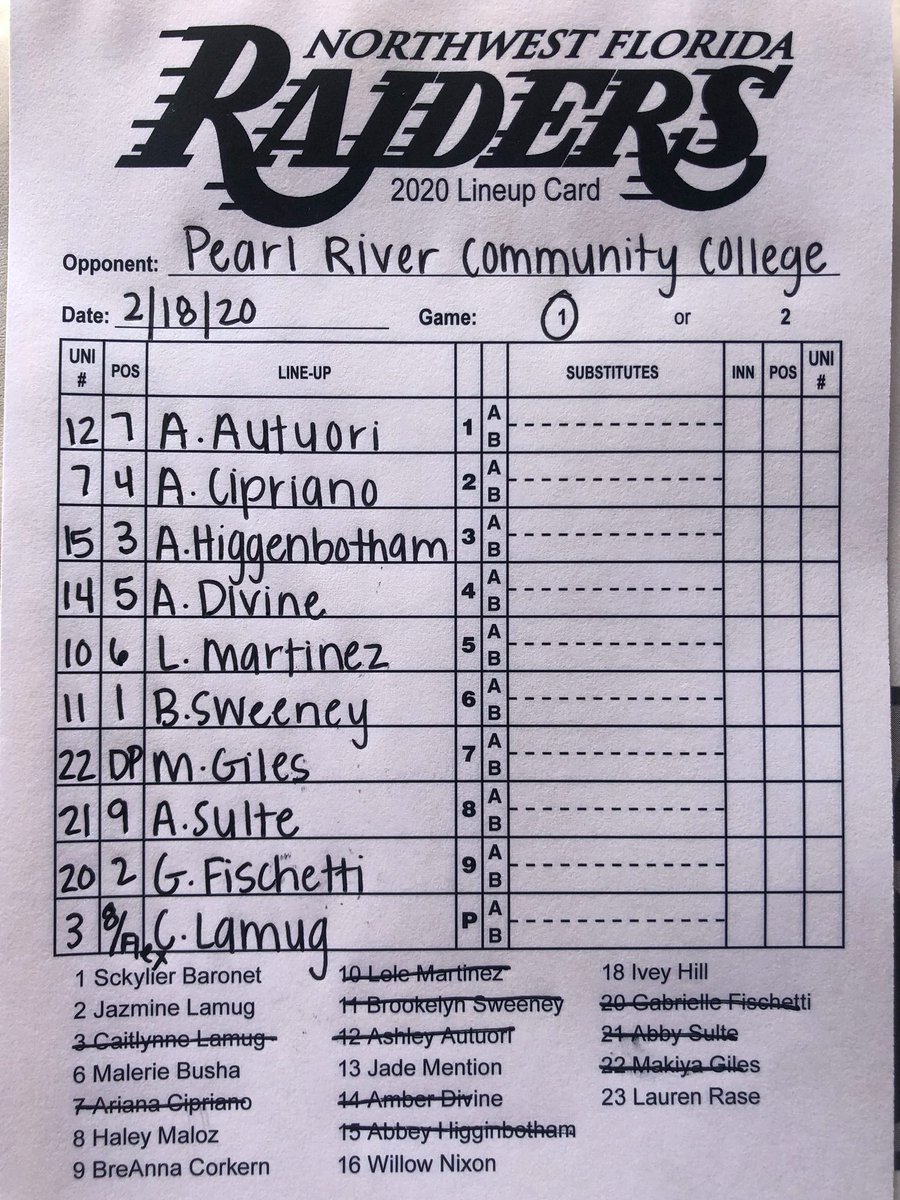 NORTHWEST FLORIDA
RAIDERS
2020 Lineup Card
Opponent: Pearl River Community College
Date: 2/18/20 Game: 1 or 2
UNI # POS LINE-UP SUBSTITUTES INN POS UNI #
12 7 A. Autuori 1 A B
7 4 A. Cipriano 2 A B
15 3 A. Higgenbotham 3 A B
14 5 A. Divine 4 A B
10 6 L. Martinez 5 A B
11 1 B. Sweeney 6 A B
22 DP M. Giles 7 A B
21 9 A. Sulte 8 A B
20 2 G. Fischetti 9 A B
3 8/Flex C. Lamug P A B
1 Sckylier Baronet
2 Jazmine Lamug
3 Caitlynne Lamug
6 Malerie Busha
7 Ariana Cipriano
8 Haley Maloz
9 BreAnna Corkern
10 Lele Martinez
11 Brookelyn Sweeney
12 Ashley Autuori
13 Jade Mention
14 Amber Divine
15 Abbey Higginbotham
16 Willow Nixon
18 Ivey Hill
20 Gabrielle Fischetti
21 Abby Sulte
22 Makiya Giles
23 Lauren Rase